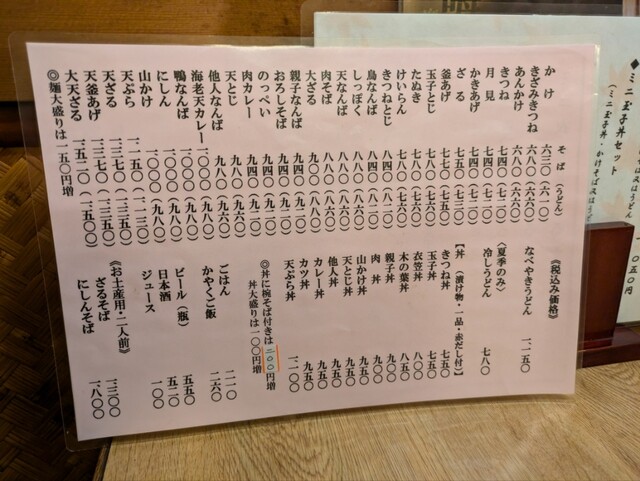 そば（うどん）
かけ 六三〇（六一〇）
きざみきつね 六八〇（六六〇）
あんかけ 六八〇（六六〇）
きつね 七四〇（七二〇）
月見 七四〇（七二〇）
かきあげ 七四〇（七二〇）
ざる 七五〇
釜あげ
玉子とじ 七八〇（七六〇）
たぬき 七八〇（七六〇）
けいらん 七八〇（七六〇）
きつねとじ 八四〇（八二〇）
鳥なんば 八四〇（八二〇）
しっぽく 八八〇（八六〇）
天なんば 八八〇（八六〇）
肉そば 八八〇（八六〇）
大ざる 九〇〇
親子なんば 九四〇（九二〇）
おろしそば 九四〇
のっぺい 九四〇（九二〇）
肉カレー 九八〇（九六〇）
天とじ 九八〇（九六〇）
他人なんば 九八〇（九六〇）
海老天カレー 一、〇〇〇（九八〇）
鴨なんば 一、〇〇〇（九八〇）
にしん 一、〇〇〇（九八〇）
山かけ 一、〇〇〇（九八〇）
天ぷら 一、一五〇
天ざる 一、三七〇（一、三五〇）
天釜あげ 一、三七〇（一、三五〇）
大天ざる 一、五二〇（一、五〇〇）
◎麺大盛りは一五〇円増
《税込み価格》
なべやきうどん 一、二五〇
〈夏季のみ〉
冷しうどん 七八〇
【丼（漬け物・一品・赤だし付）】
きつね丼 七五〇
玉子丼 七五〇
衣笠丼 八〇〇
木の葉丼 八五〇
親子丼 九〇〇
肉丼 九〇〇
山かけ丼 九五〇
天とじ丼 九五〇
他人丼 九五〇
カレー丼 九五〇
カツ丼 九五〇
天ぷら丼 一、一〇〇
◎丼に椀そば付きは二〇〇円増
丼大盛りは一〇〇円増
ごはん 二一〇
かやくご飯 二六〇
ビール（瓶） 五五〇
日本酒 五二〇
ジュース 一〇〇
《お土産用・二人前》
ざるそば 一、三〇〇
にしんそば 一、八〇〇
◆ミニ玉子丼セット
（ミニ玉子丼・かけそば又はうどん）
〇五〇円